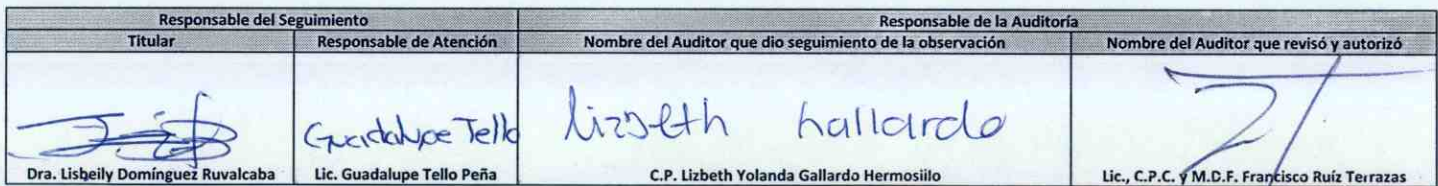 Responsable del Seguimiento Responsable de la Auditoría
Titular Responsable de Atención Nombre del Auditor que dio seguimiento de la observación Nombre del Auditor que revisó y autorizó
Guadalupe Tello lizbeth Gallardo
Dra. Lisbeily Domínguez Ruvalcaba Lic. Guadalupe Tello Peña C.P. Lizbeth Yolanda Gallardo Hermosiilo Lic., C.P.C. y M.D.F. Francisco Ruíz Terrazas